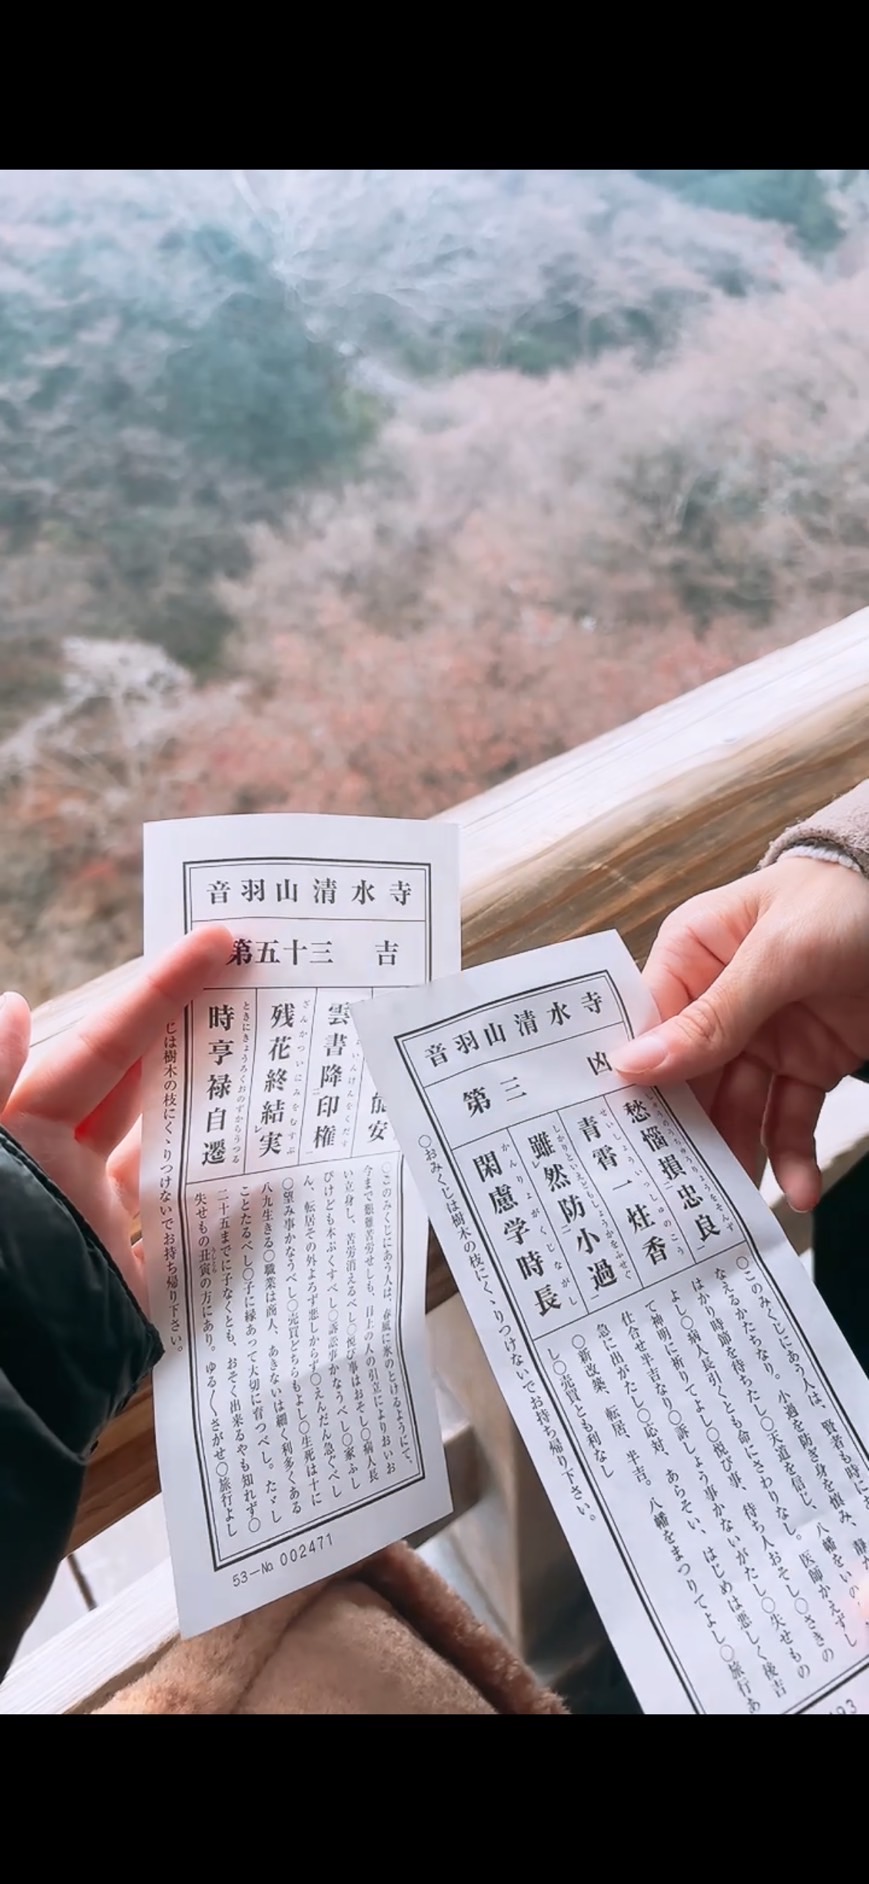 音羽山清水寺
第五十三 吉
雲書降印権
残花終結実
ざんかついにみをむすぶ
時亨禄自遷
ときにきょうろくおのずからうつる
○このみくじにあう人は、春風に氷のとけるようにて、
今まで艱難苦労せしも、目上の人の引立によりおいお
い立身し、苦労消えるべし○悦び事はおそし○病人長
びけども本ぷくすべし○訴訟事かなうべし○家ふし
ん、転居その外よろず悪しからず○えんだん急ぐべし
○望み事かなうべし○売買どちらもよし○生死は十に
八九生きる○職業は商人、あきないは細く利多くある
ことたるべし○子に縁あって大切に育つべし。たゞし
二十五までに子なくとも、おそく出来るやも知れず○
失せもの丑寅の方にあり。ゆる〱さがせ○旅行よし
うしとら
じは樹木の枝にくゝりつけないでお持ち帰り下さい。
53-№ 002471
音羽山清水寺
第三 凶
愁悩損忠良
青霄一炷香
せいしょういっしゅのこう
雖然防小過
しかりといえどもしょうかをふせぐ
閑慮学時長
かんりょがくじながし
○このみくじにあう人は、賢者も時に
なえるかたちなり。小過を防ぎ身を慎み、
はかり時節を待ちたし○天道を信じ、八幡をい
よし○病人長引くとも命にさわりなし。医師かえずし
て神明に祈りてよし○悦び事、待ち人おそし○さきの
仕合せ半吉なり○訴しょう事かないがたし○失せもの
急に出がたし○応対、あらそい、はじめは悪しく後吉
○新改築、転居、半吉。八幡をまつりてよし○旅行あ
し○売買とも利なし
○おみくじは樹木の枝にくゝりつけないでお持ち帰り下さい。